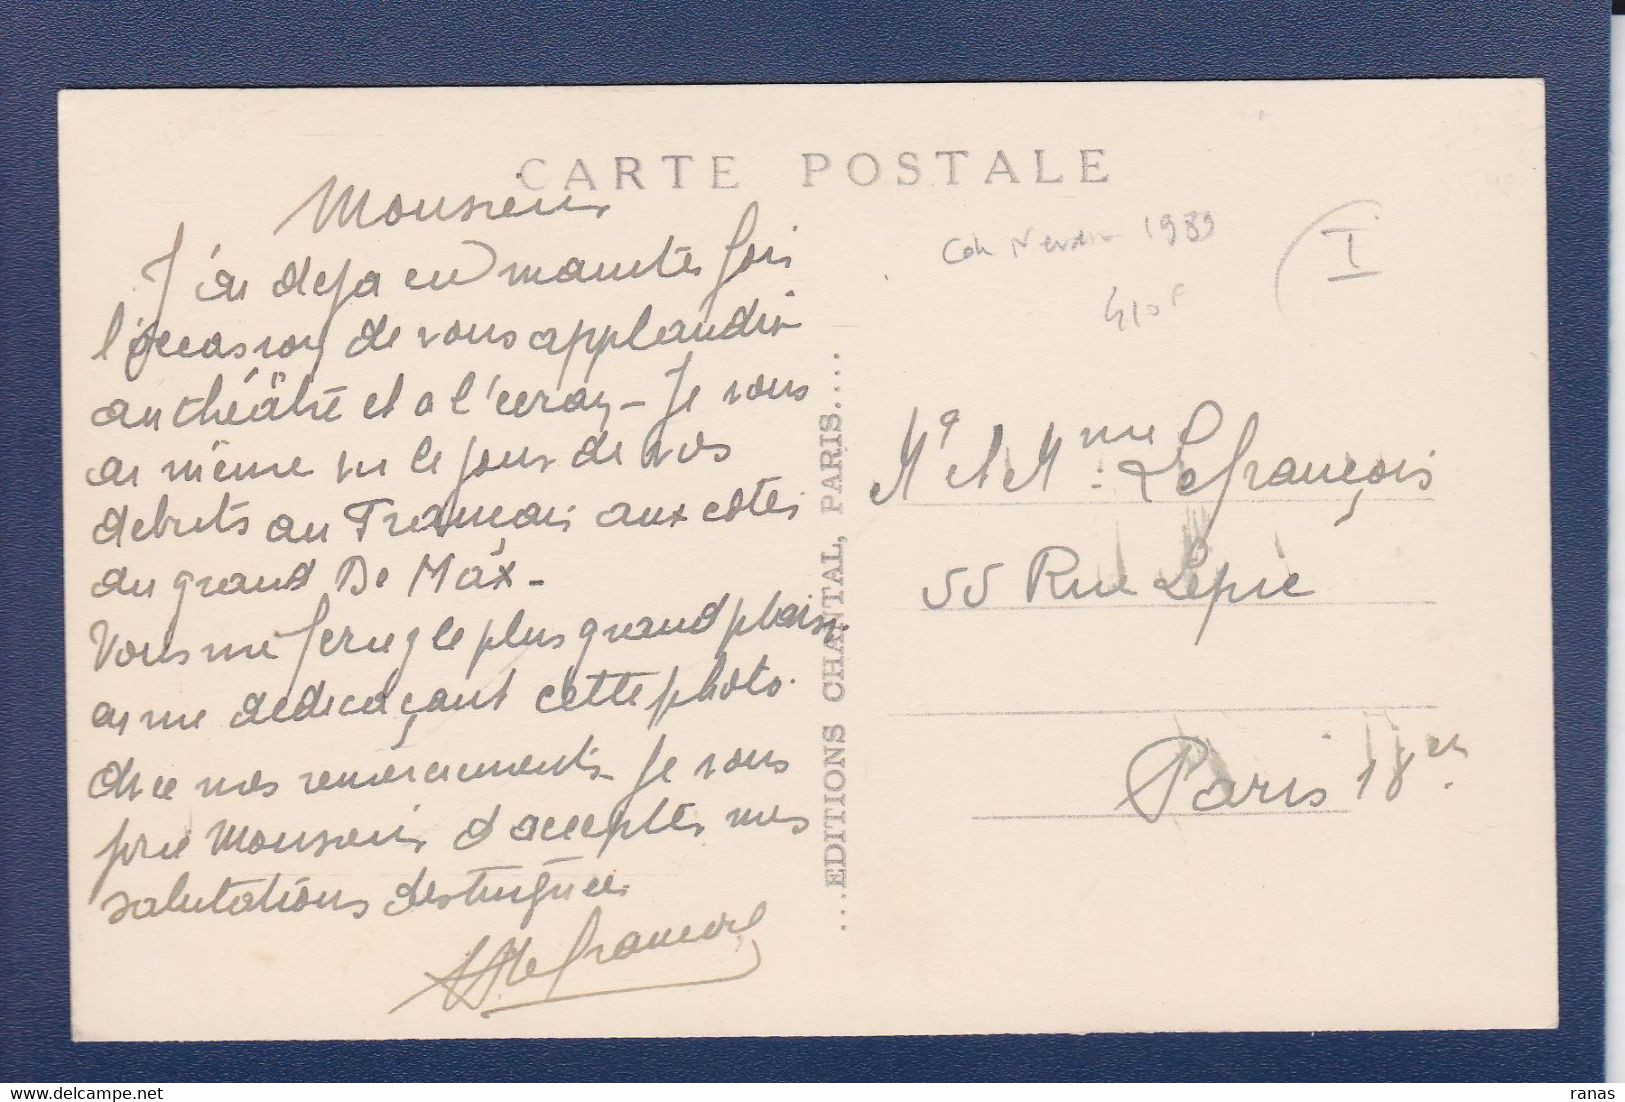 CARTE POSTALE
Monsieur
J'ai deja eu maintes fois
l'occasion de vous applaudir
au théâtre et a l'écran - Je vous
ai même vu le jour de vos
debuts au Français aux cotés
du grand De Max -
Vous me feriez le plus grand plaisir
en me dedicaçant cette photo.
Avec mes remerciements Je vous
prie Monsieur d'accepter mes
salutations distinguées
Lefrançois
...EDITIONS CHANTAL, PARIS....
1989
410F
I
Mr et Mme Lefrançois
55 Rue Lepic
Paris 18em.
ranas